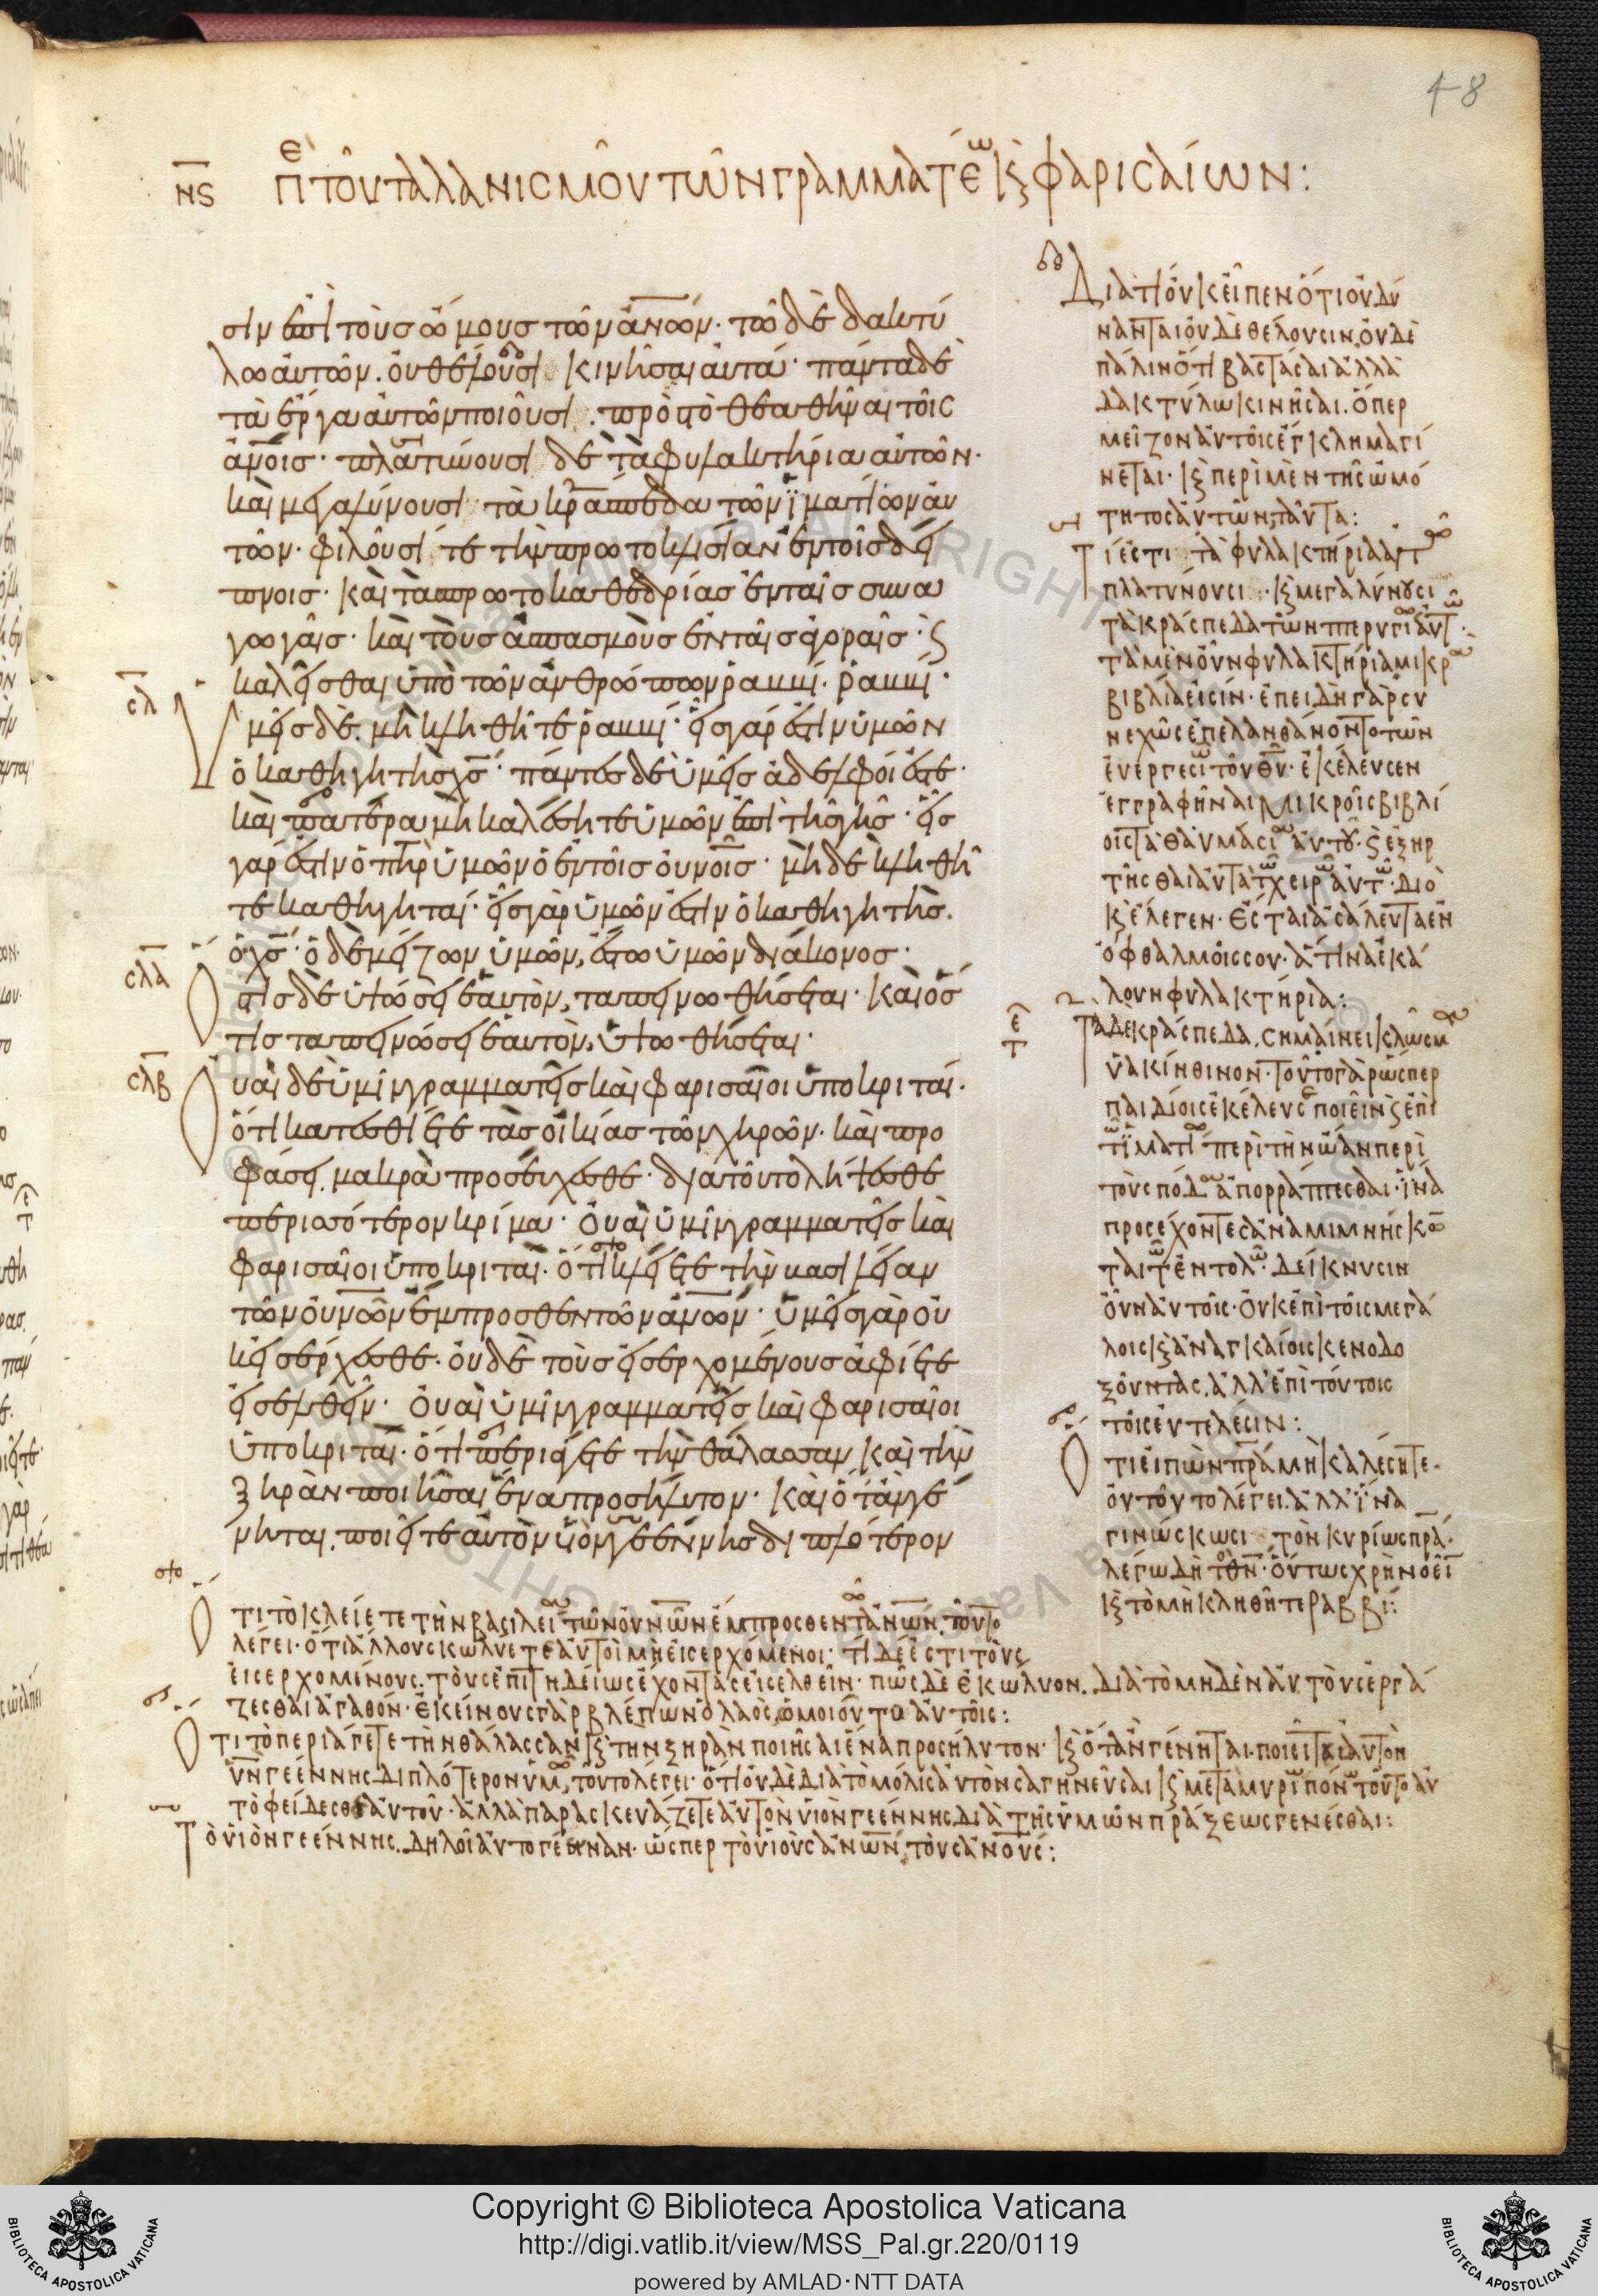 48
νϛ πε τοῦ ταλανισμοῦ τῶν γραμματέω κϛ φαρισαίων:
σιν ἐπὶ τοὺς ὤμους τῶν ἀνων· τῶ δὲ δακτύ
λω αὐτῶν. οὐ θέλουσι κινῆσαι αὐτά· πάντα δὲ
τὰ ἔργα αὐτῶν ποιοῦσι. πρὸς τὸ θεαθῆναι τοῖς
ἀνοις· πλατύνουσι δὲ τὰ φυλακτήρια αὐτῶν·
καὶ μεγαλύνουσι τὰ κράσπεδα τῶν ἱματίων αὐ
τῶν· φιλοῦσί τε τὴν πρωτοκλισίαν ἐν τοῖς δεί
πνοις· καὶ τὰς πρωτοκαθεδρίας ἐν ταῖς συνα
γωγαῖς· καὶ τοὺς ἀσπασμοὺς ἐν ταῖς ἀγοραῖς· ϛ
σλ καλεῖσθαι ὑπὸ τῶν ἀνθρώπων ῥαββί· ῥαββί·
Ὑμεῖς δὲ μὴ κληθῆτε ῥαββί· εἷς γάρ ἐστιν ὑμῶν
ὁ καθηγητὴς χς· πάντες δὲ ὑμεῖς ἀδελφοί ἐστε·
καὶ πατέρα μὴ καλέσητε ὑμῶν ἐπὶ τῆς γῆς· εἷς
γάρ ἐστιν ὁ πηρ ὑμῶν ὁ ἐν τοῖς οὐνοις· μὴ δὲ κληθῆ
τε καθηγηταί· εἷς γὰρ ὑμῶν ἐστιν ὁ καθηγητής.
σλα ὁ χς· ὁ δὲ μείζων ὑμῶν, ἔστω ὑμῶν διάκονος·
Ὅστις δὲ ὑψώσει ἑαυτὸν, ταπεινωθήσεται· καὶ ὅσ
τις ταπεινώσει ἑαυτὸν, ὑψωθήσεται·
σλβ Οὐαὶ δὲ ὑμῖν γραμματεῖς καὶ φαρισαῖοι ὑποκριταί·
ὅτι κατεσθίετε τὰς οἰκίας τῶν χηρῶν· καὶ προ
φάσει μακρὰ προσευχόμενοι· διὰ τοῦτο λήψεσθε
περισσότερον κρίμα· Οὐαὶ ὑμῖν γραμματεῖς καὶ
φαρισαῖοι ὑποκριταί· ὅτι κλείετε τὴν βασιλείαν
τῶν οὐνων ἔμπροσθεν τῶν ἀνων· ὑμεῖς γὰρ οὐ
κ εἰσέρχεσθε· οὐδὲ τοὺς εἰσερχομένους ἀφίετε
εἰσελθεῖν· Οὐαὶ ὑμῖν γραμματεῖς καὶ φαρισαῖοι
ὑποκριταί· ὅτι περιάγετε τὴν θάλασσαν καὶ τὴν
ξηρὰν ποιῆσαι ἕνα προσήλυτον· καὶ ὅταν γέ
νηται, ποιεῖτε αὐτὸν υἱὸν γεέννης διπλότερον
Διατί οὐκ εἶπεν ὅτι οὐ δύ
νανται οὐδὲ θέλουσιν, οὐδὲ
πάλιν ὅτι βαστάσαι ἀλλὰ
δακτύλω κινῆσαι. ὅπερ
μεῖζον αὐτοῖς ἔγκλημα γί
νεται· κϛ περὶ μὲν τῆς ὠμό
τητος αὐτῶν, ταῦτα:
Τί ἐστι τὰ φυλακτήρια
πλατύνουσι· κϛ μεγαλύνουσι
τὰ κράσπεδα τῶν
τὰ μὲν οὖν φυλακτήρια μικρ
βιβλία εἰσίν· ἐπειδὴ γὰρ συ
νεχῶς ἐπελανθάνοντο τῶν
εὐεργεσιῶ τοῦ θυ· ἐκέλευσεν
ἐγγραφῆναι μικροῖς βιβλί
οις τὰ θαυμάσια αὐτοῦ· ϛ ἐξηρ
τῆσθαι αὐτὰ τῶ χειρῶ αὐτῶ· διὸ
κϛ ἔλεγεν· Ἔσται ἀσάλευτα ἐν
ὀφθαλμοῖς σου· ἅτινα ἐκά
λουν φυλακτήρια:
Τὰ δὲ κράσπεδα, σημαίνει κλῶσμα
ὑακίνθινον· τοῦτο γὰρ ὥσπερ
παιδίοις ἐκέλευσε ποιεῖν ϛ ἐπὶ
τῶ ἱματίω περὶ τὴν ὤαν περὶ
τοὺς πόδας ἀπορράπτεσθαι· ἵνα
προσέχοντες ἀναμιμνήσκω
ται τῶ ἐντολῶ· δείκνυσιν
οὖν αὐτοῖς· οὐκ ἐπὶ τοῖς μεγά
λοις κϛ ἀναγκαίοις κενοδο
ξοῦντας, ἀλλ' ἐπὶ τούτοις
τοῖς εὐτελέσιν:
Ὅτι εἰπὼν πρα μὴ καλέσητε·
οὐ τοῦτο λέγει, ἀλλ' ἵνα
γινώσκωσι τὸν κυρίως πρα·
λέγω δὴ τὸν θν· οὕτως χρὴ νοεῖ
κϛ τὸ μὴ κληθῆτε ραββί:
Ὅτι τὸ κλείετε τὴν βασιλεία τῶν οὐνων ἔμπροσθεν τ ἀνων, τοῦτο
λέγει· ὅτι ἄλλους κωλύετε αὐτοὶ μὴ εἰσερχόμενοι· τί δέ ἐστι τοὺς
εἰσερχομένους· τοὺς ἐπιτηδείως ἔχοντας εἰσελθεῖν· πῶς δὲ ἐκώλυον. διὰ τὸ μηδὲν αὐτοὺς ἐργά
ζεσθαι ἀγαθόν· ἐκείνους γὰρ βλέπων ὁ λαὸς, ὁμοιοῦτο αὐτοῖς:
Ὅτι τὸ περιάγετε τὴν θάλασσαν κϛ τὴν ξηρὰν ποιῆσαι ἕνα προσήλυτον· κϛ ὅταν γένηται· ποιεῖται αὐτὸν
υν γεέννης διπλότερον ὑμῶ, τοῦτο λέγει· ὅτι οὐδὲ διὰ τὸ μόλις αὐτὸν σαγηνεῦσαι κϛ μετὰ μυρίω πόνω τοῦτο αὐ
τὸ φείδεσθε αὐτοῦ· ἀλλὰ παρασκευάζετε αὐτὸν υἱὸν γεέννης διὰ τῆς ὑμῶν πράξεως γενέσθαι:
Τὸ υἱὸν γεέννης. δηλοῖ αὐτογέενναν· ὥσπερ τὸ υἱοὺς ἀνων, τοὺς ἀνους:
Copyright © Biblioteca Apostolica Vaticana
http://digi.vatlib.it/view/MSS_Pal.gr.220/0119
powered by AMLAD·NTT DATA
BIBLIOTECA APOSTOLICA VATICANA
BIBLIOTECA APOSTOLICA VATICANA